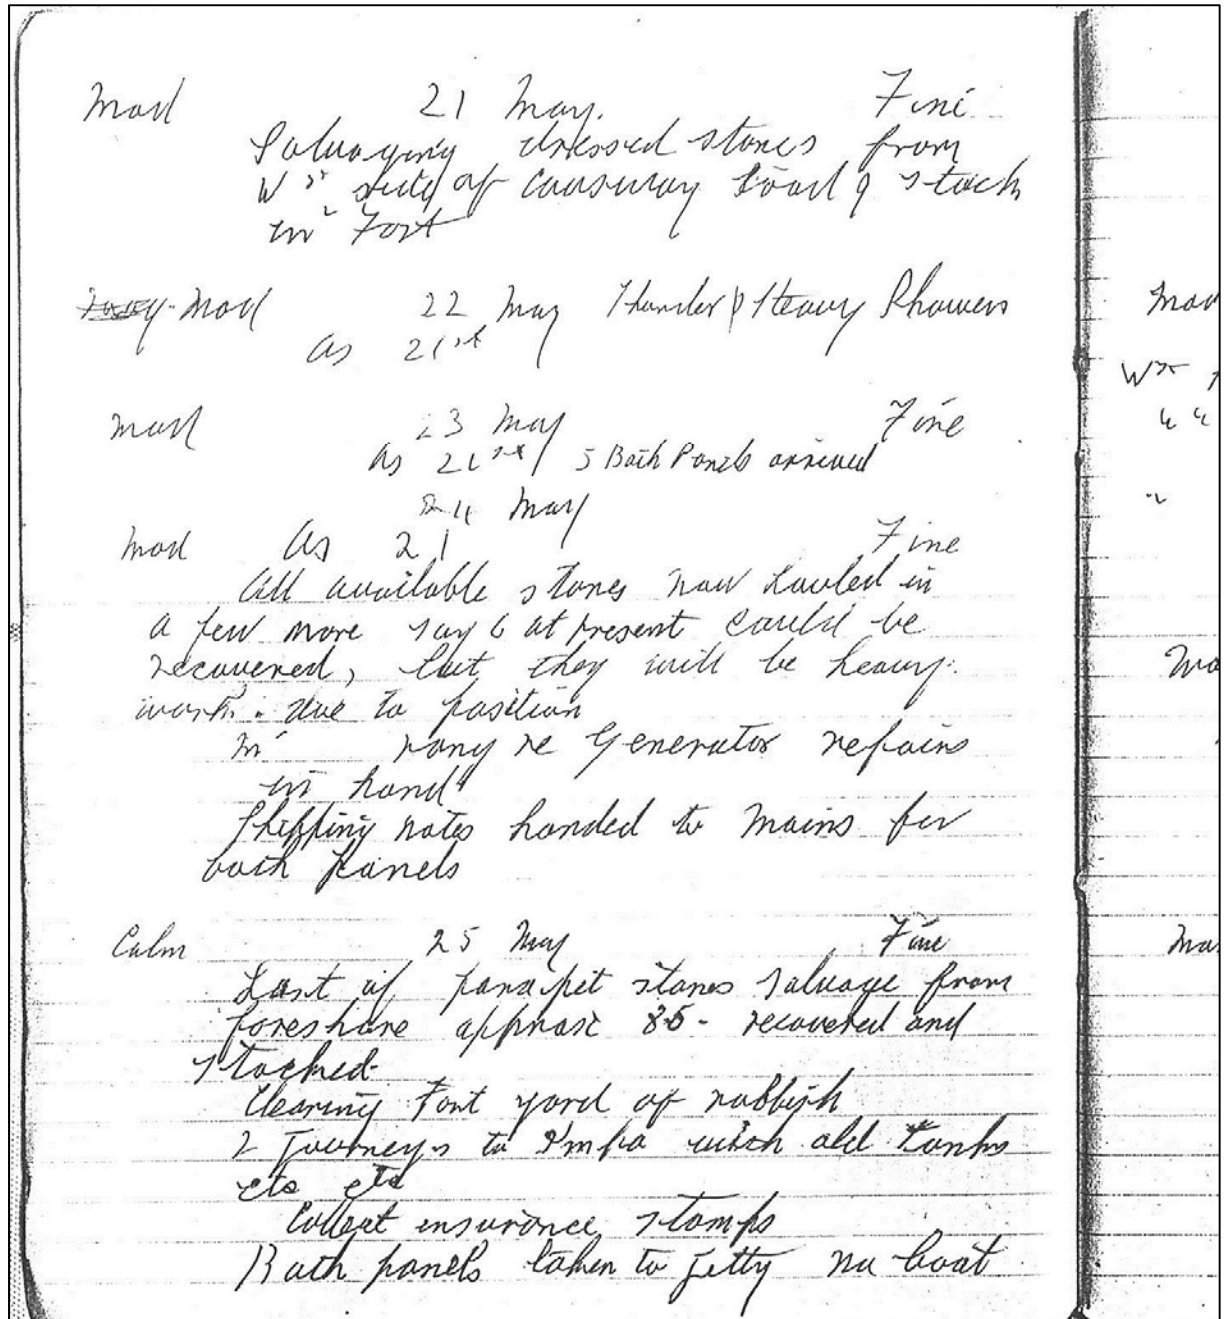 Mod 21 May. Fine
Salvaging dressed stones from
W sr side of causeway Road & stack
in Fort
Mod 22 May Thunder & Heavy Showers
As 21st
Mod 23 May Fine
As 21st 5 Bath Panels arrived
24 May
Mod As 21 Fine
All available stones now hauled in
a few more say 6 at present could be
recovered, but they will be heavy
work. due to position
re Generator repairs
in hand
Shipping notes handed to Mains for
bath panels
Calm 25 May Fine
Last of parapet stones salvage from
foreshore approx 85 - recovered and
stacked.
Clearing Fort yard of rubbish
2 Journeys to with old tanks
etc etc
Collect insurance stamps
Bath panels taken to Jetty no boat